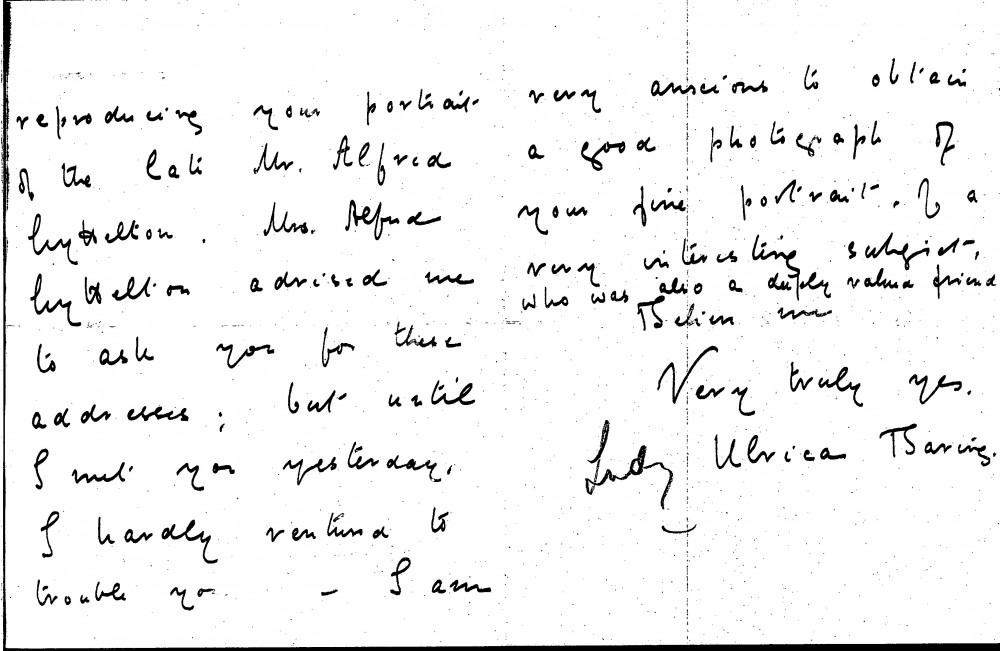 reproducing your portrait
of the late Mr. Alfred
Lyttelton. Mrs. Alfred
Lyttelton advised me
to ask you for these
addresses; but until
I met you yesterday,
I hardly ventured to
trouble you – I am
very anxious to obtain
a good photograph of
your fine portrait, of a
very interesting subject,
who was also a deeply valued friend
Believe me
Very truly yrs.
Lady Ulrica Baring.